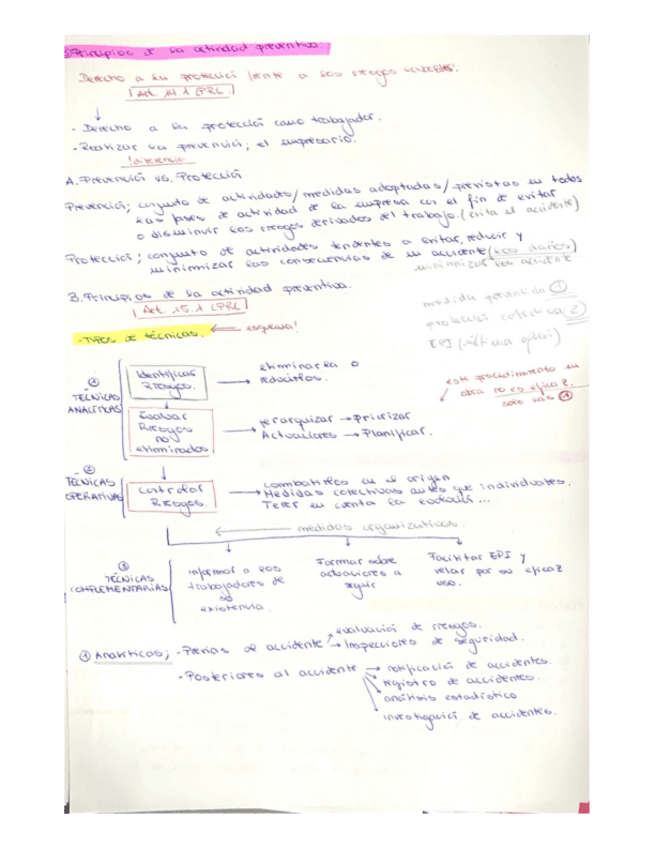 Principios de la actividad preventiva.
Derecho a la protección frente a los riesgos laborales.
Art. 14.1 LPRL.
- Derecho a la protección como trabajador.
- Realizar la prevención; el empresario.
!diferencia
A. Prevención vs. Protección
Prevención; conjunto de actividades/medidas adoptadas/previstas en todas
las fases de actividad de la empresa con el fin de evitar
o disminuir los riesgos derivados del trabajo. (evita el accidente)
Protección; conjunto de actividades tendentes a evitar, reducir y
minimizar las consecuencias de un accidente (los daños)
minimizar los accidente
B. Principios de la actividad preventiva.
Art. 15.1 LPRL
medida preventiva ①
protección colectiva ②
EPI (última opción)
- TIPOS DE TÉCNICAS. ⟸ esquema!
este procedimiento en
obra no es eficaz.
solo las ①
① TÉCNICAS ANALÍTICAS
Identificar Riesgos. → eliminarlos o reducirlos.
Evaluar Riesgos no eliminados → jerarquizar → Priorizar
Actuaciones → Planificar.
② TÉCNICAS OPERATIVAS
Controlar Riesgos. → Combatirlos en el origen
→ Medidas colectivas antes que individuales.
Tener en cuenta la evolución ...
← medidas organizativas.
③ TÉCNICAS COMPLEMENTARIAS
informar a los trabajadores de su existencia.
Formar sobre actuaciones a seguir
Facilitar EPI y velar por su eficaz uso.
① Analíticas; - Previas al accidente → evaluación de riesgos.
→ Inspecciones de seguridad.
- Posteriores al accidente → notificación de accidentes.
registro de accidentes.
análisis estadístico
investigación de accidentes.